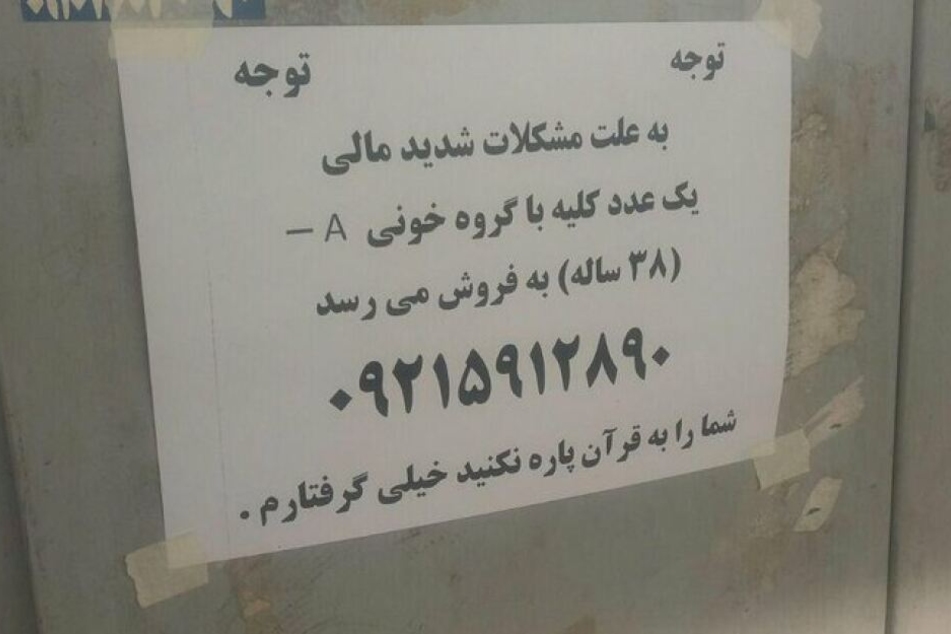 توجه توجه
به علت مشکلات شدید مالی
یک عدد کلیه با گروه خونی A –
(۳۸ ساله) به فروش می رسد
۰۹۲۱۵۹۱۲۸۹۰
شما را به قرآن پاره نکنید خیلی گرفتارم .